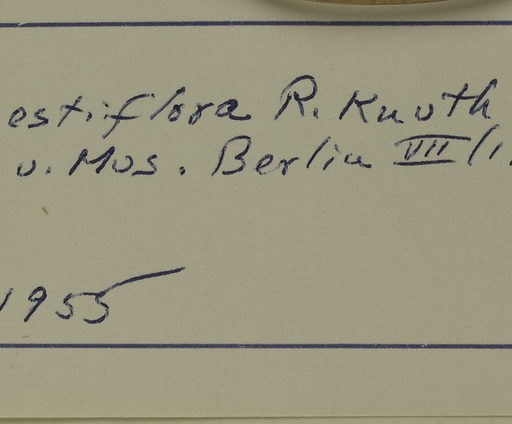 estiflora R. Knuth
v. Mus. Berlin VII/1.
1955